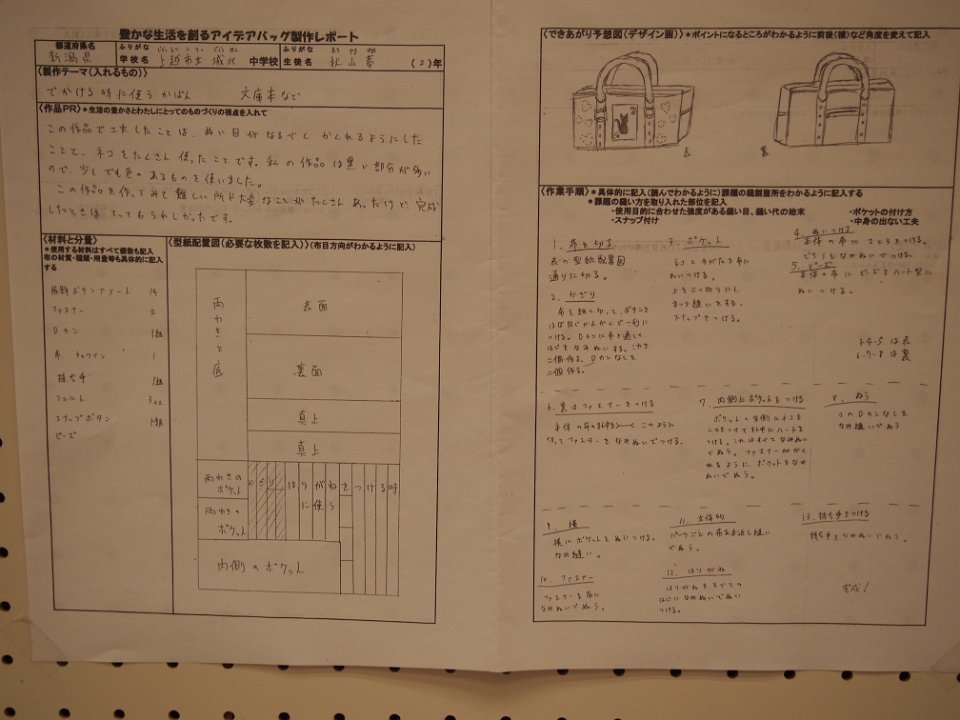 豊かな生活を創るアイデアバッグ製作レポート
都道府県名
新潟県
ふりがな
学校名 上越市立 城北 中学校
ふりがな
生徒名 秋山
(2)年
〈製作テーマ(入れるもの)〉
でかける時に使うかばん 文庫本など
〈作品PR〉*生活の豊かさとわたしにとってのものづくりの視点を入れて
この作品で工夫したことは、ぬい目がなるべくかくれるようにした
ことと、ネコをたくさん使ったことです。私の作品は黒い部分が多い
ので、少しでも色のあるものを使いました。
この作品を作ってみて難しい所や大変なことがたくさんあったけど、完成
したときはとってもうれしかったです。
〈材料と分量〉
*使用する材料はすべて個数も記入
布の材質・種類・用量等も具体的に記入
する
ファスナー 2
Dカン 1組
布 1
持ち手 1組
フェルト
スナップボタン 1組
ビーズ
〈型紙配置図(必要な枚数を記入)〉(布目方向がわかるように記入)
両わきと底
表面
裏面
真上
真上
両わきの
ポケット
両わきの
ポケット
かざり
はりがねをつける時
に使う
内側のポケット
〈できあがり予想図(デザイン画)〉*ポイントになるところがわかるように前後(横)など角度を変えて記入
表
裏
〈作業手順〉*具体的に記入(読んでわかるように)課題の縫製箇所をわかるように記入する
*課題の縫い方を取り入れた部位を記入
・使用目的に合わせた強度がある縫い目、縫い代の始末
・ポケットの付け方
・スナップ付け
・中身の出ない工夫
1. 布を切る
表の型紙配置図
通りに切る。
2. かざり
布を細く切って、ボタンを
つける。Dカンに布を通して
はじをなみぬいする。これを
二個作る。Dカンなしを
二個作る。
3. ポケット
ネコと手がたを布に
ぬいつける。
上を三つ折りにし、
まつり縫いをする。
スナップをつける。
4. ぬいつける
本体の布に2と3をつける。
どちらもなみぬいでつける。
5. ビーズ
本体の布にビーズをハート型に
ぬいつける。
3・4・5は表
6・7・8は裏
6. 裏はファスナーをつける
このように
切ってファスナーをなみぬいでつける。
7. 内側にポケットをつける
つける。これはすべてなみぬい
でぬう。ファスナーがかく
れるように、ポケットをなみ
ぬいでぬう。
8. ぬう
2のDカンなしを
なみ縫いでぬう
9. 横
横にポケットをぬいつける。
なみ縫い。
10. ファスナー
ファスナーを布に
なみぬいでぬう。
11. 立体的
パーツごとの布を本返し縫い
でぬう。
12. はりがね
はりがねをすべての
はじになみぬいでぬい
つける。
13. 持ち手をつける
持ち手をなみぬいでぬう。
完成!